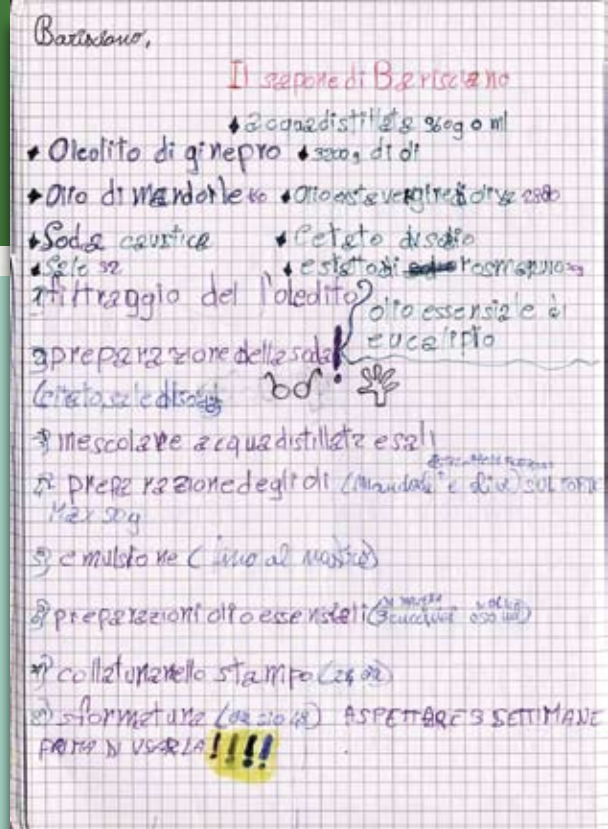 Barisciano,
Il sapone di Barisciano
♦ acqua distillata 960g o ml
♦ Oleolito di ginepro ♦ 3200g di oli
♦ Olio di mandorle ♦ Olio extravergine d'oliva 2880
♦ Soda caustica ♦ Cetato di sodio
♦ Sale 32 ♦ estratto di rosmarino
1) filtraggio del l'oleolito
olio essenziale di
eucalipto
2) preparazione della soda!
(citrato, sale di soda)
3) mescolare acqua distillata e sali
4) preparazione degli oli (mandorle e oliva) SUL FORTE
Max 50g
5) emulsione (fino al nastro)
6) preparazioni olio essenziali (3 cucchiai o 50 ml)
7) collatura nello stampo (24 ore)
8) sformatura ASPETTARE 3 SETTIMANE
PRIMA DI USARLA!!!!